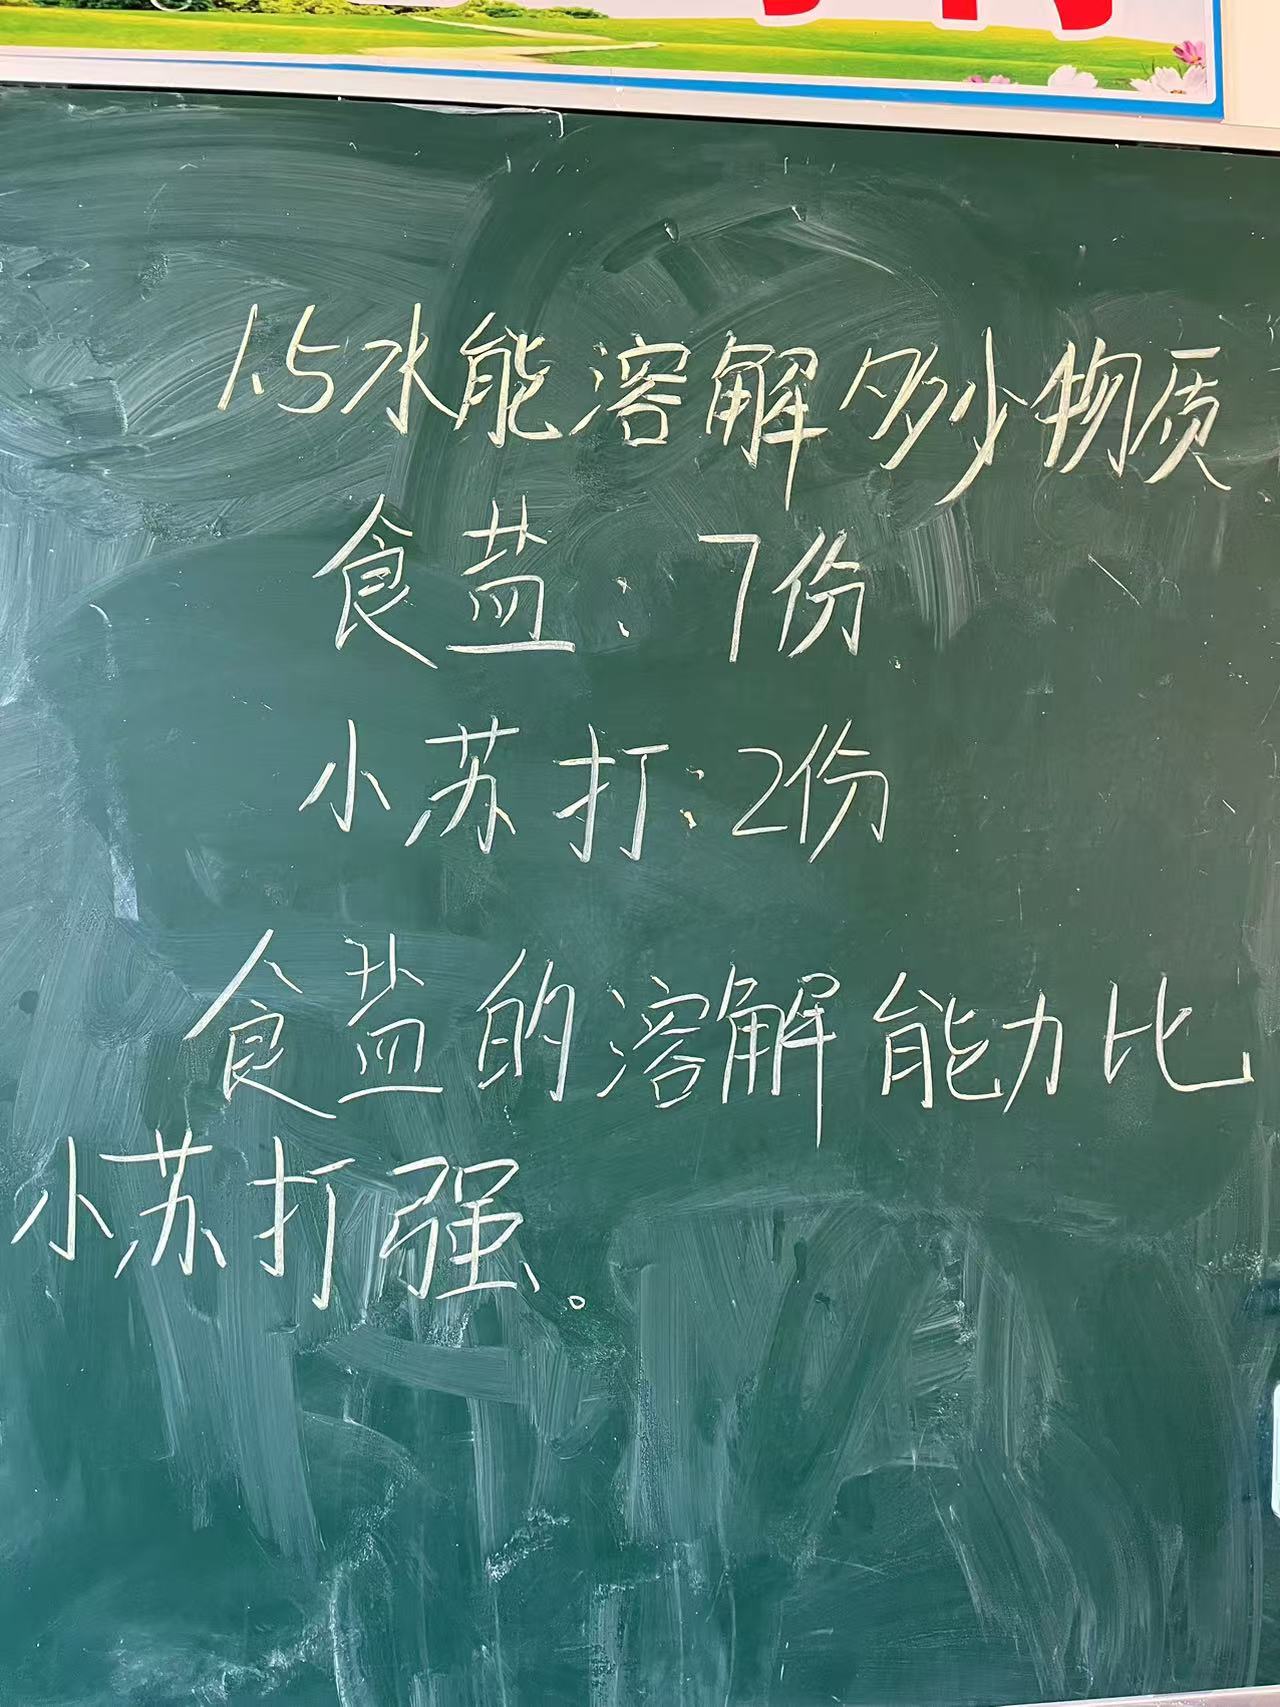 1.5水能溶解多少物质
食盐：7份
小苏打：2份
食盐的溶解能力比
小苏打强。